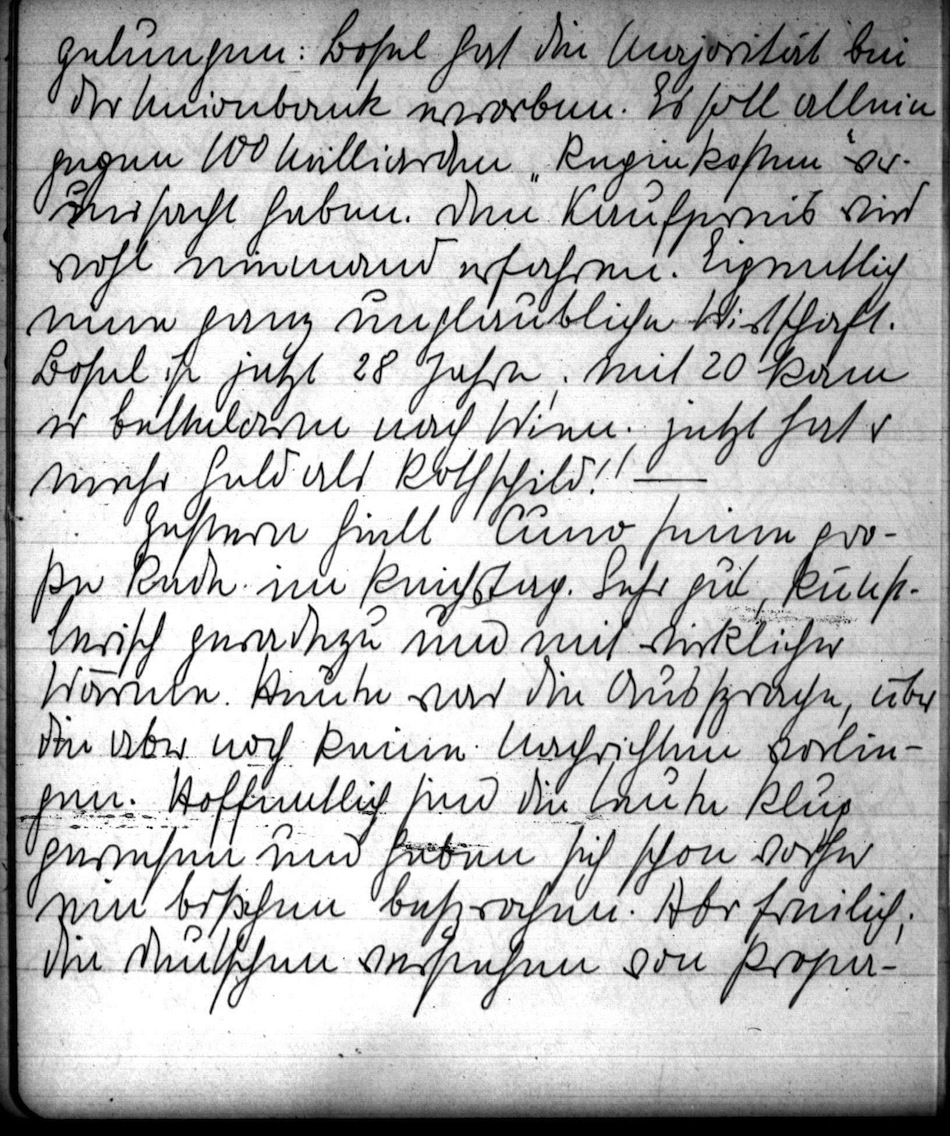 gelungen: Bosel hat die Majorität bei
der Unionbank erworben. Es soll allein
gegen 100 Milliarden „Regiekosten“ ver-
ursacht haben. Den Kaufpreis wird
wohl niemand erfahren. Eigentlich
eine ganz unglaubliche Wirtschaft.
Bosel ist jetzt 28 Jahre, mit 20 kam
er bettelarm nach Wien, jetzt hat er
mehr Geld als Rothschild!! —
Gestern hielt Cuno seine gro-
ße Rede im Reichstag. Sehr gut, künst-
lerisch geradezu und mit wirklicher
Wärme. Heute war die Aussprache, über
die aber noch keine Nachrichten vorlie-
gen. Hoffentlich sind die Leute klug
gewesen und haben sich schon vorher
ein bißchen besprochen. Aber freilich,
die Deutschen verstehen von Propa-